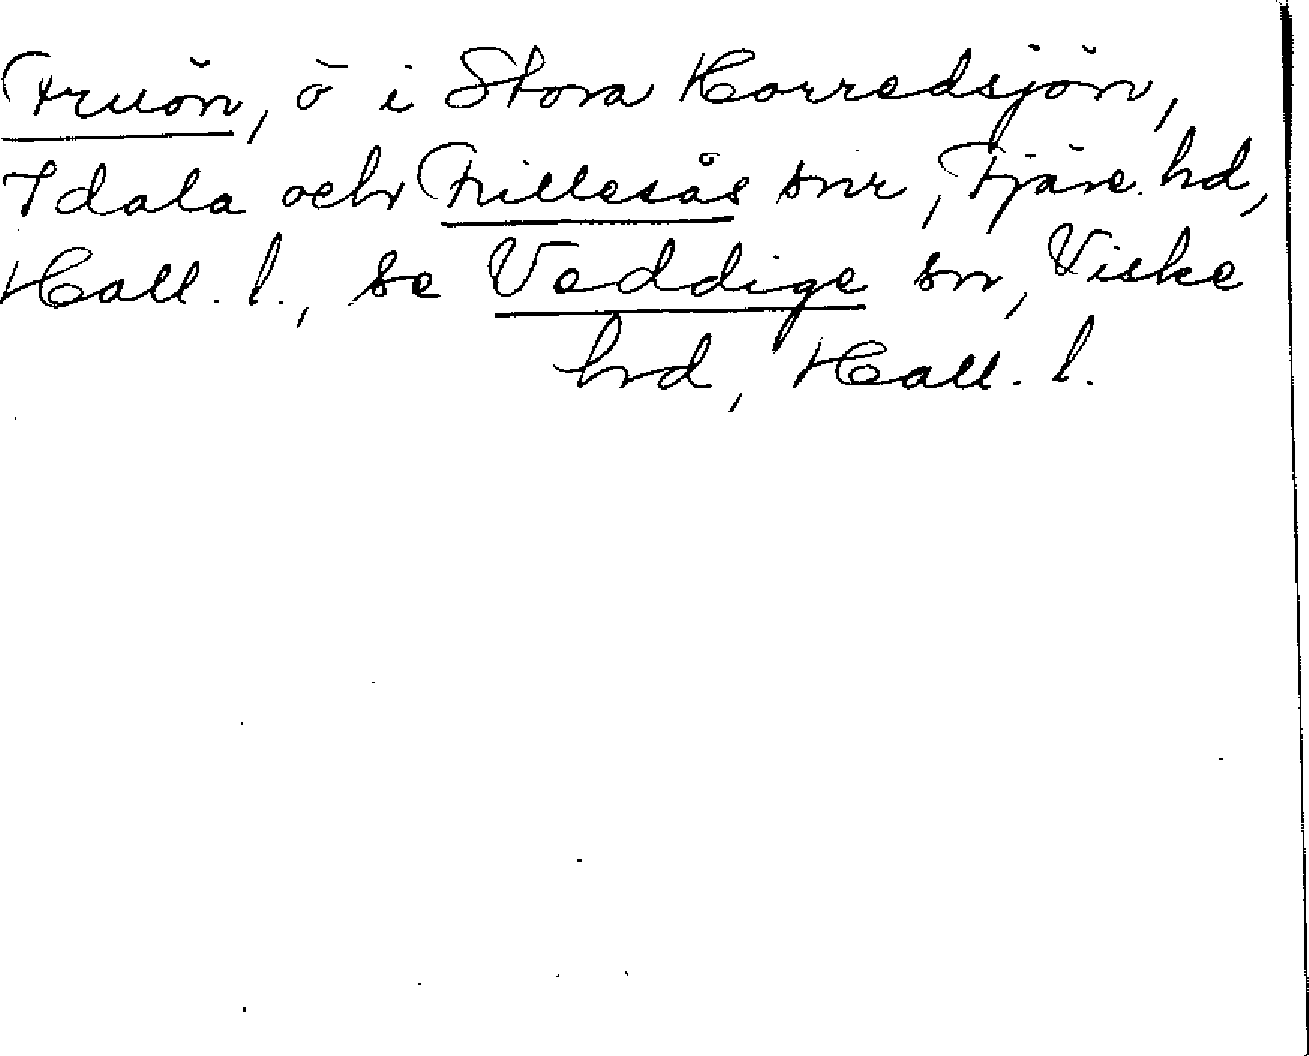 Fruön, ö i Stora Horredsjön,
Idala och Frillesås snr, Fjäre hd,
Hall. l., se Veddige sn, Viske
hd, Hall. l.